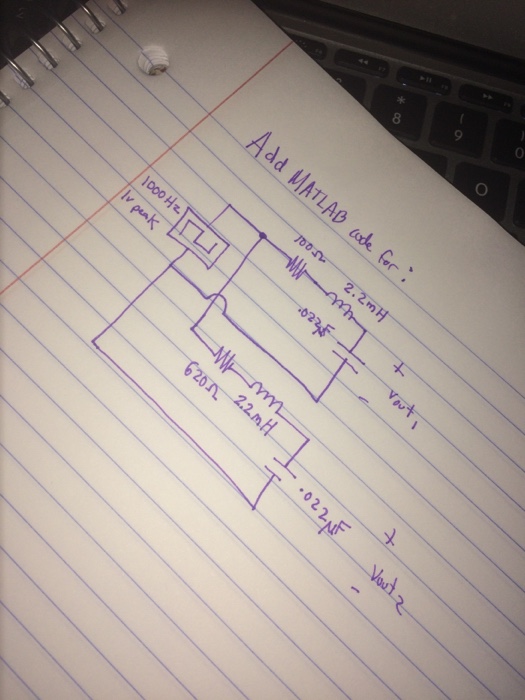 Add MATLAB code for:
1000Hz
1v peak
100Ω
2.2mH
.022μF
+
Vout1
-
620Ω
2.2mH
.022μF
+
Vout2
-
*
8
(
9
O